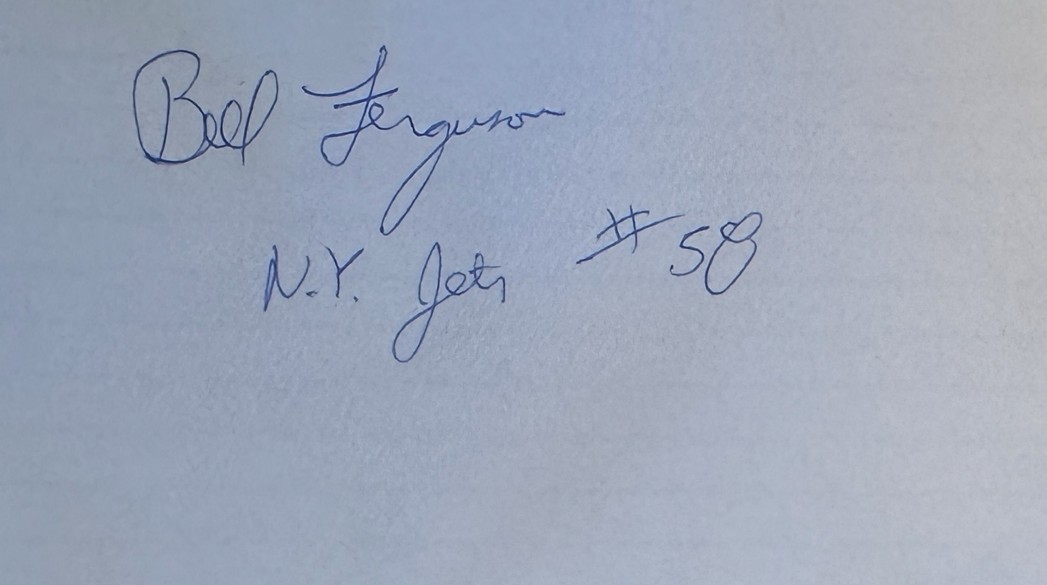 Bill Ferguson
N.Y. Jets #58